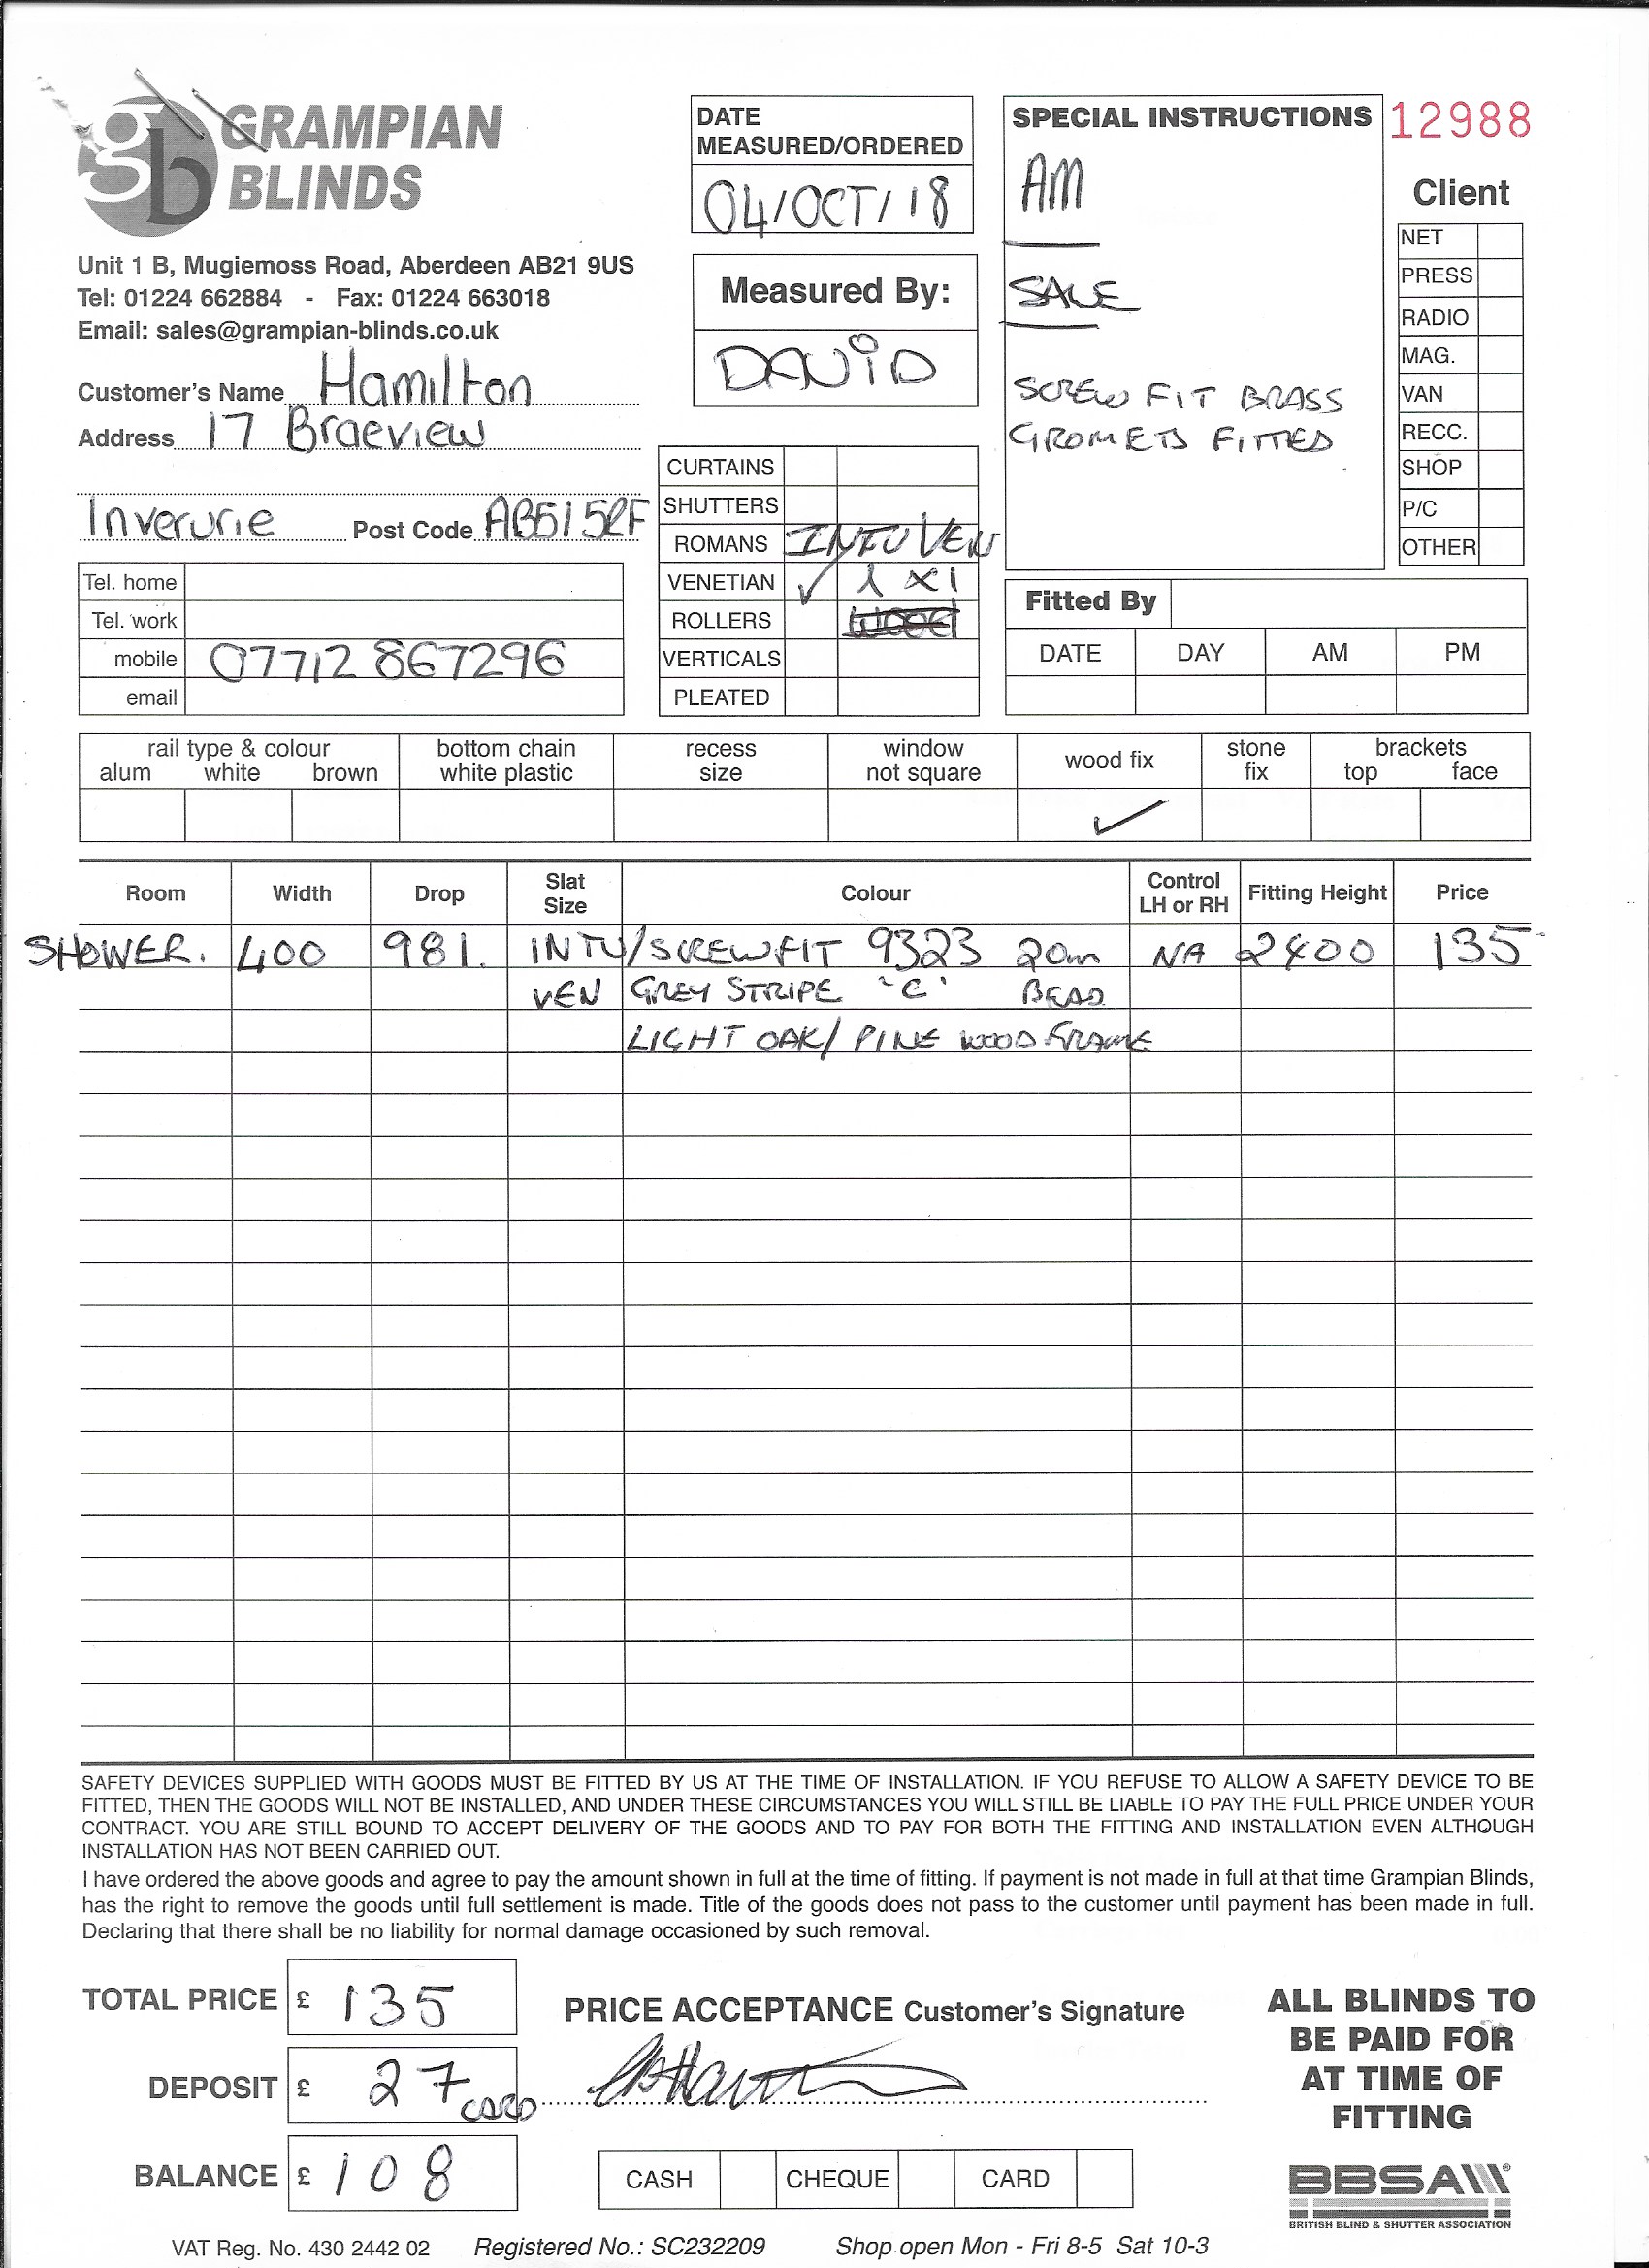 gb GRAMPIAN
BLINDS
Unit 1 B, Mugiemoss Road, Aberdeen AB21 9US
Tel: 01224 662884 - Fax: 01224 663018
Email: sales@grampian-blinds.co.uk
Customer's Name Hamilton
Address 17 Braeview
Inverurie Post Code AB51 5
Tel. home
Tel. work
mobile 07712 867296
email
DATE
MEASURED/ORDERED
04/OCT/18
Measured By:
DAVID
CURTAINS
SHUTTERS
ROMANS INTU VEN
VENETIAN ✓ 1 X 1
ROLLERS
VERTICALS
PLEATED
SPECIAL INSTRUCTIONS
AM
SALE
SCREW FIT BRASS
GROMETS FITTED
12988
Client
NET
PRESS
RADIO
MAG.
VAN
RECC.
SHOP
P/C
OTHER
Fitted By
DATE DAY AM PM
rail type & colour
alum white brown
bottom chain
white plastic
recess
size
window
not square
wood fix
✓
stone
fix
brackets
top face
Room Width Drop Slat Size Colour Control LH or RH Fitting Height Price
SHOWER. 400 981. INTU/SCREWFIT 9323 20m NA 2400 135
VEN GREY STRIPE "C" BEAD
LIGHT OAK/ PINE WOOD FRAME
SAFETY DEVICES SUPPLIED WITH GOODS MUST BE FITTED BY US AT THE TIME OF INSTALLATION. IF YOU REFUSE TO ALLOW A SAFETY DEVICE TO BE
FITTED, THEN THE GOODS WILL NOT BE INSTALLED, AND UNDER THESE CIRCUMSTANCES YOU WILL STILL BE LIABLE TO PAY THE FULL PRICE UNDER YOUR
CONTRACT. YOU ARE STILL BOUND TO ACCEPT DELIVERY OF THE GOODS AND TO PAY FOR BOTH THE FITTING AND INSTALLATION EVEN ALTHOUGH
INSTALLATION HAS NOT BEEN CARRIED OUT.
I have ordered the above goods and agree to pay the amount shown in full at the time of fitting. If payment is not made in full at that time Grampian Blinds,
has the right to remove the goods until full settlement is made. Title of the goods does not pass to the customer until payment has been made in full.
Declaring that there shall be no liability for normal damage occasioned by such removal.
TOTAL PRICE £ 135
DEPOSIT £ 27 CARD
BALANCE £ 108
PRICE ACCEPTANCE Customer's Signature
CASH CHEQUE CARD
ALL BLINDS TO
BE PAID FOR
AT TIME OF
FITTING
BBSA ®
BRITISH BLIND & SHUTTER ASSOCIATION
VAT Reg. No. 430 2442 02 Registered No.: SC232209 Shop open Mon - Fri 8-5 Sat 10-3